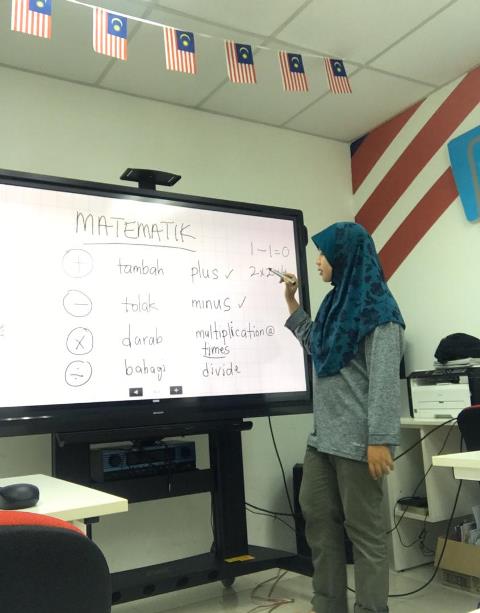 MATEMATIK
1-1=0
2x2=4
+ tambah plus ✓
- tolak minus ✓
x darab multiplication@
times
÷ bahagi divide